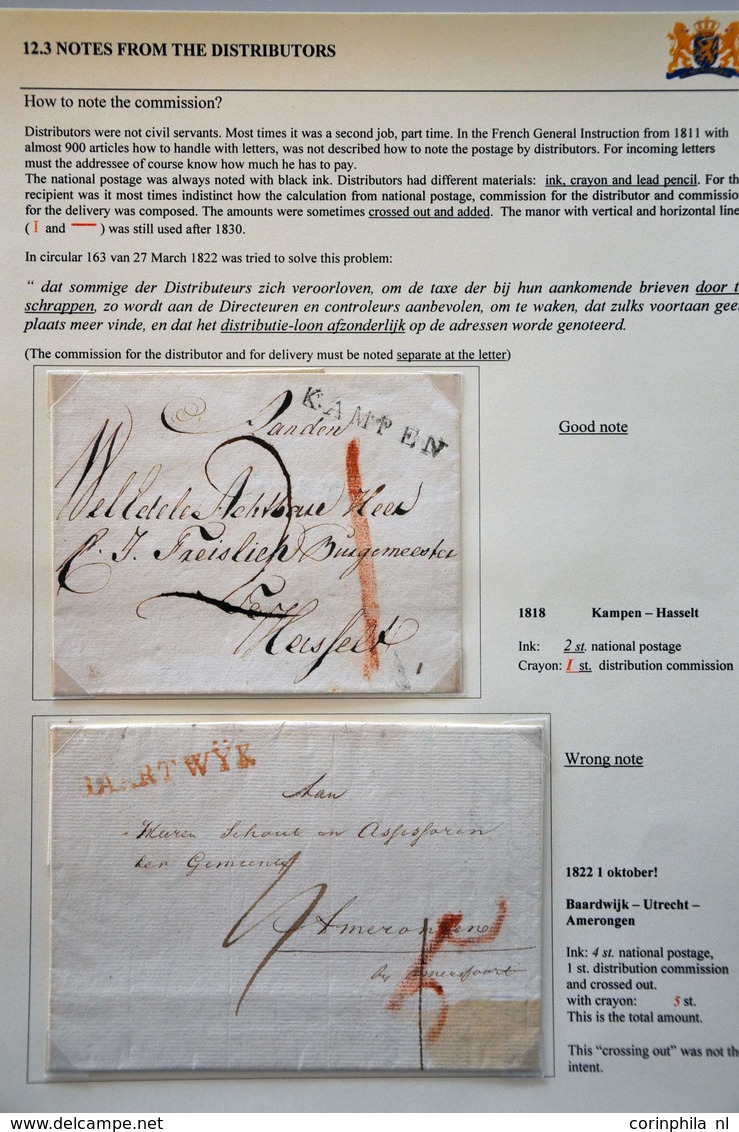 12.3 NOTES FROM THE DISTRIBUTORS
How to note the commission?
Distributors were not civil servants. Most times it was a second job, part time. In the French General Instruction from 1811 with
almost 900 articles how to handle with letters, was not described how to note the postage by distributors. For incoming letters
must the addressee of course know how much he has to pay.
The national postage was always noted with black ink. Distributors had different materials: ink, crayon and lead pencil. For th
recipient was it most times indistinct how the calculation from national postage, commission for the distributor and commissio
for the delivery was composed. The amounts were sometimes crossed out and added. The manor with vertical and horizontal line
( I and — ) was still used after 1830.
In circular 163 van 27 March 1822 was tried to solve this problem:
“ dat sommige der Distributeurs zich veroorloven, om de taxe der bij hun aankomende brieven door t
schrappen, zo wordt aan de Directeuren en controleurs aanbevolen, om te waken, dat zulks voortaan gee
plaats meer vinde, en dat het distributie-loon afzonderlijk op de adressen worde genoteerd.
(The commission for the distributor and for delivery must be noted separate at the letter)
KAMPEN
Welledele Achtbare Heer
C. J. Freislich Burgemeester
Te
Hasselt
Good note
1818 Kampen – Hasselt
Ink: 2 st. national postage
Crayon: I st. distribution commission
BAARTWŸK
Aan
Heeren Schout en Assessoren
der Gemeente
Amerongen
by Amersfoort
5
Wrong note
1822 1 oktober!
Baardwijk – Utrecht –
Amerongen
Ink: 4 st. national postage,
1 st. distribution commission
and crossed out.
with crayon: 5 st.
This is the total amount.
This “crossing out” was not th
intent.
corinphila nl